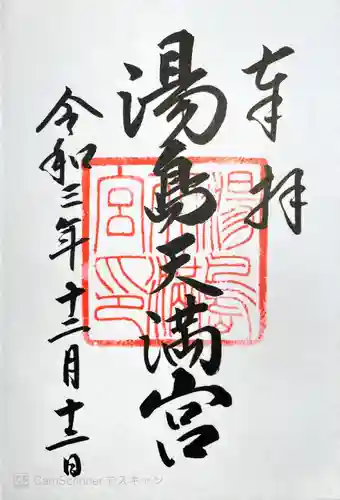 奉拝
湯島天満宮
令和三年十二月十二日
湯島
天満
宮印
CS CamScanner でスキャン